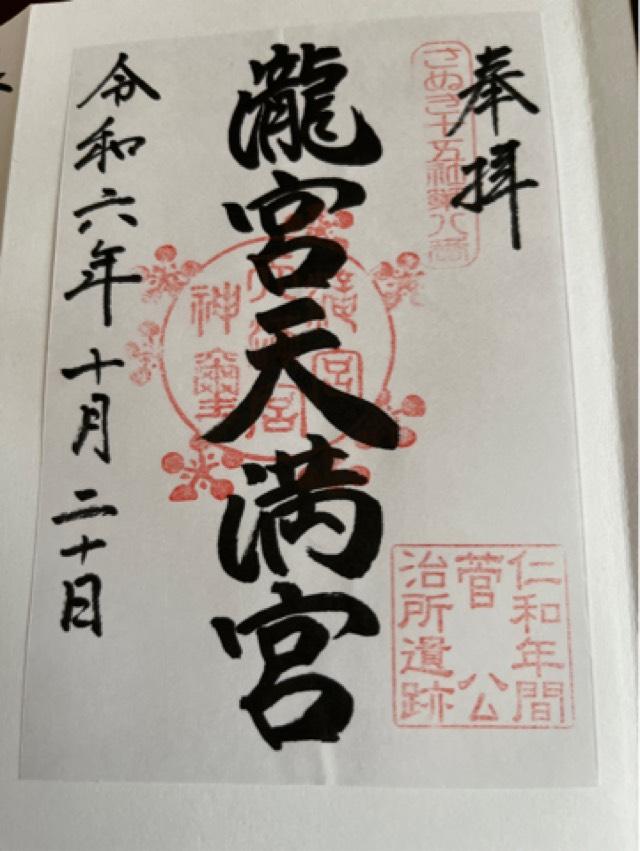 奉拝
さぬき十五社第八番
瀧宮天満宮
仁和年間
菅公
治所遺跡
令和六年十月二十日